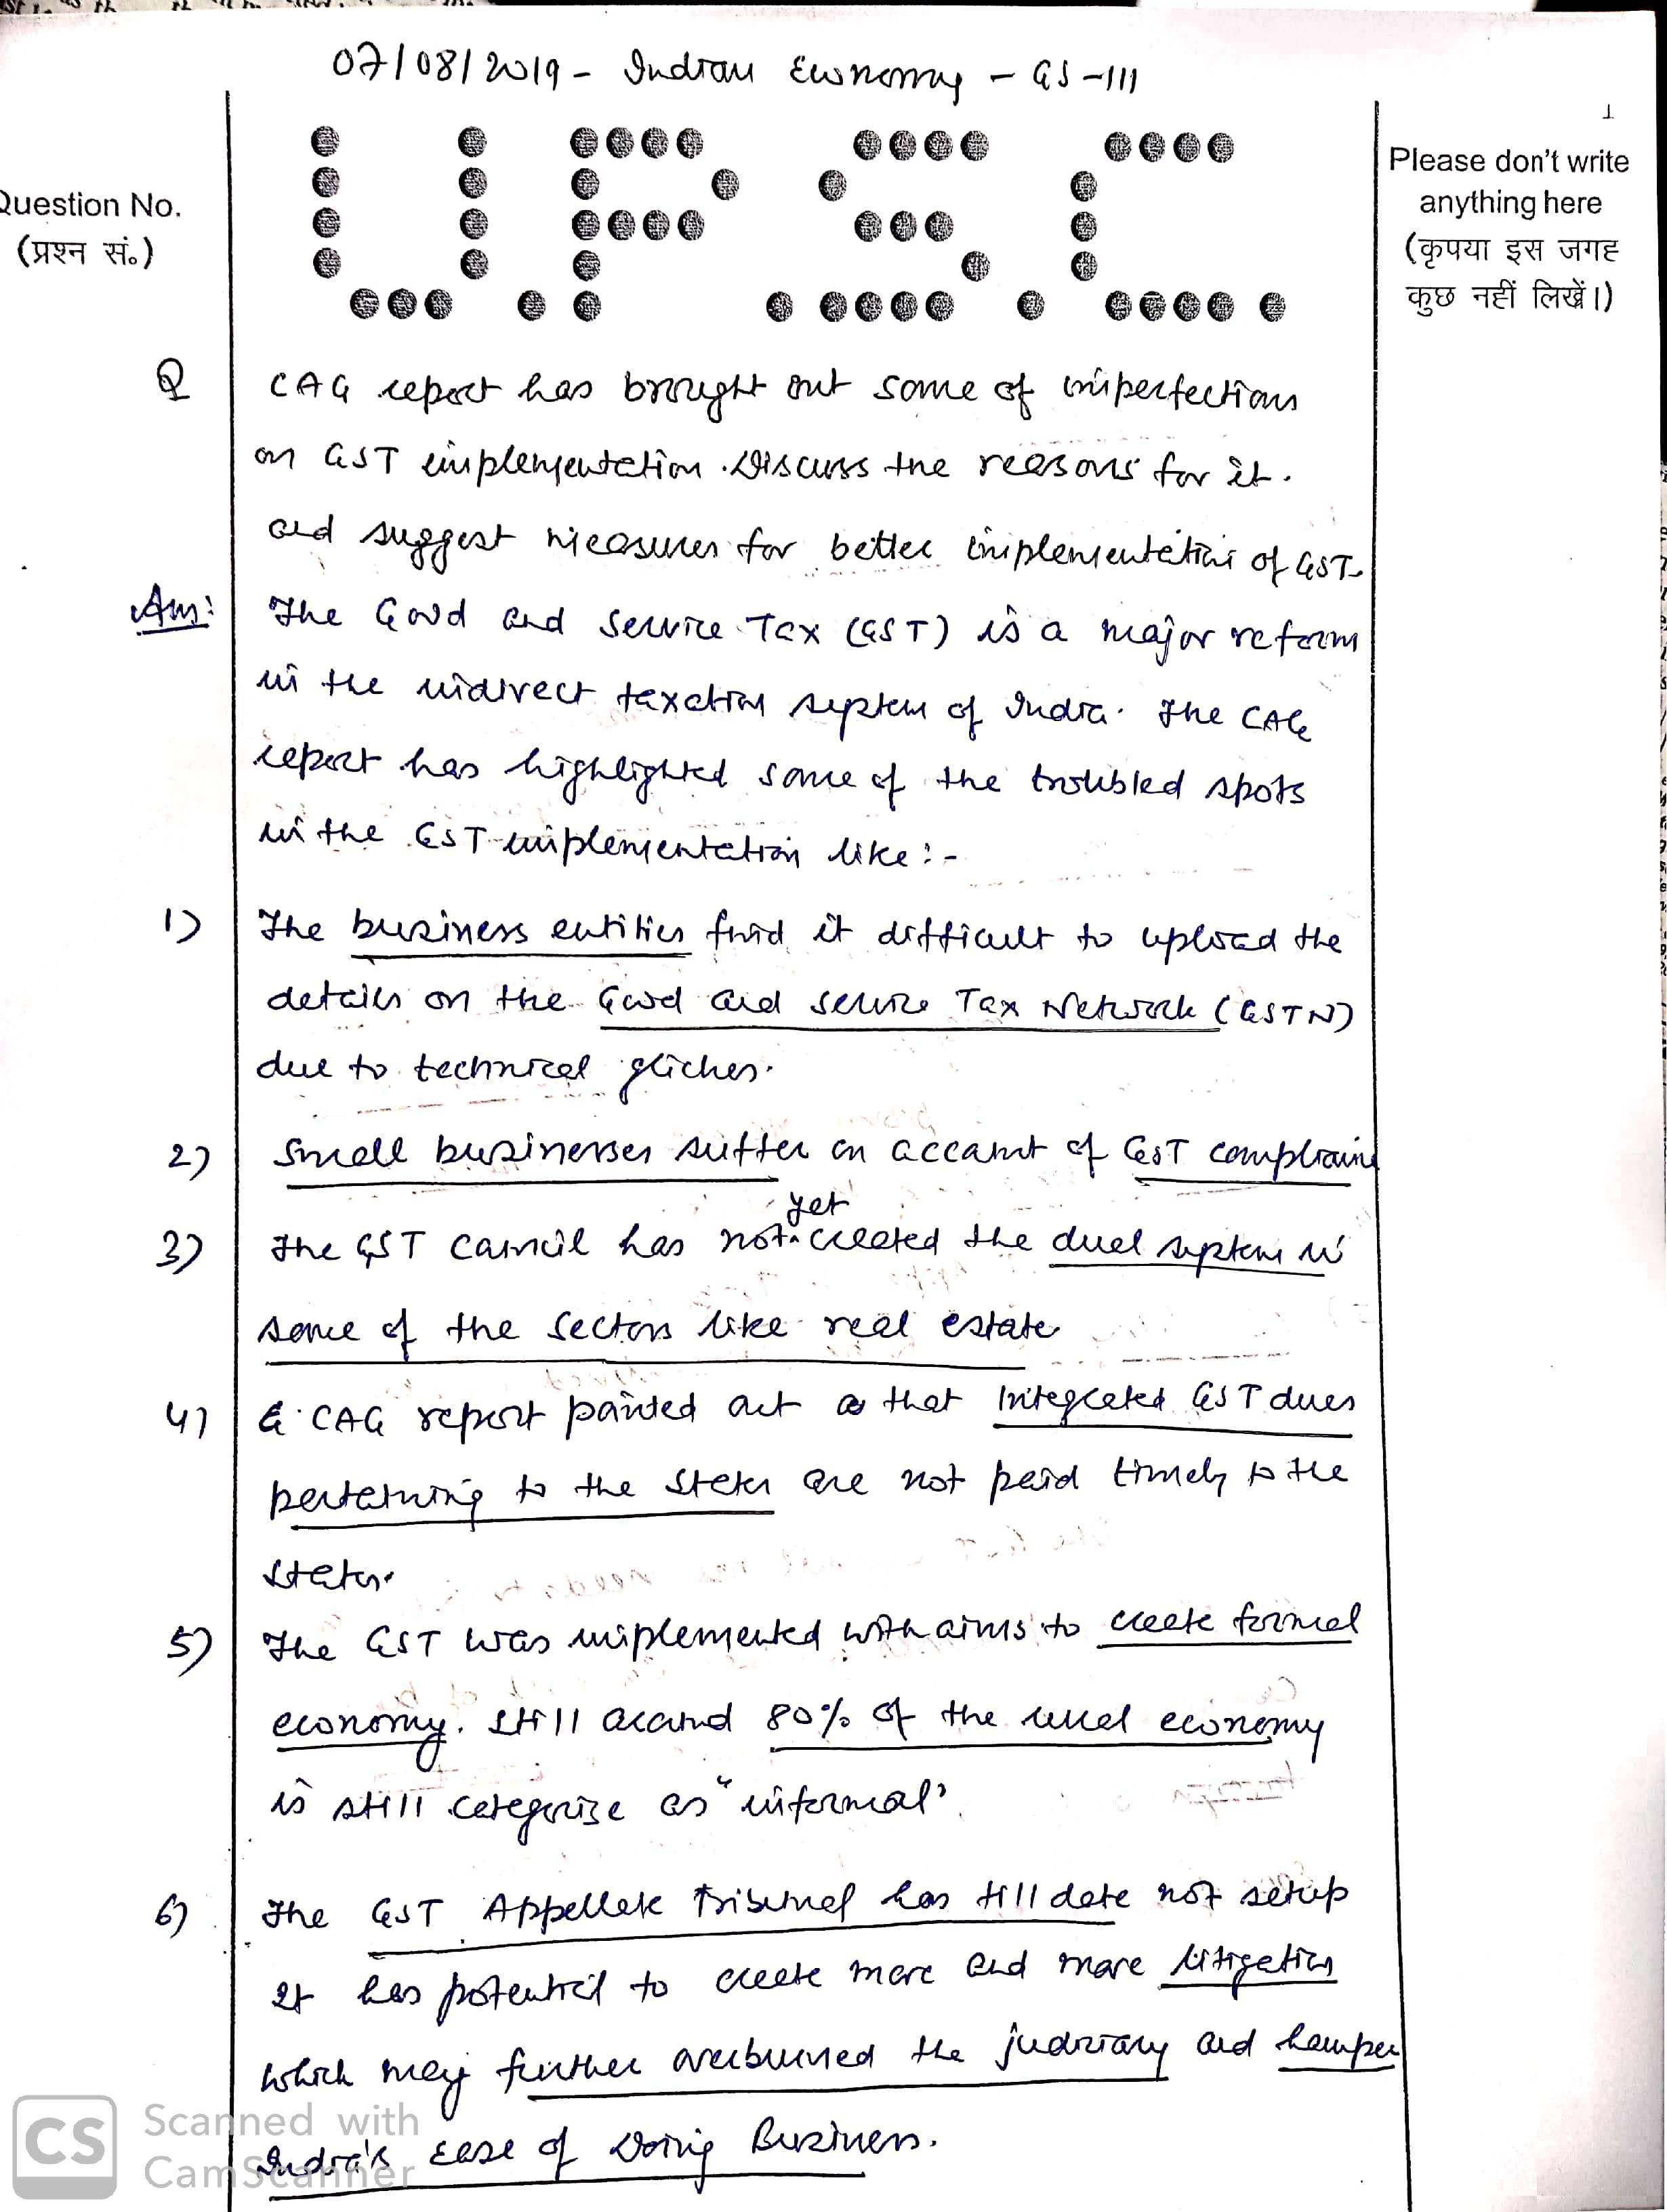 07/08/2019 - Indian Economy - GS-III
1
U.P.S.C.
Please don't write
anything here
(कृपया इस जगह
कुछ नहीं लिखें।)
Question No.
(प्रश्न सं.)
Q CAG report has brought out some of imperfections
on GST implementation. Discuss the reasons for it.
and suggest measures for better implementation of GST.
Ans: The Good and Service Tax (GST) is a major reform
in the indirect taxation system of India. The CAG
report has highlighted some of the troubled spots
in the GST implementation like:-
1) The business entities find it difficult to upload the
details on the Good and Service Tax Network (GSTN)
due to technical gliches.
2) Small businesses suffer on account of GST
yet
3) The GST Council has not created the duel system in
some of the sectors like real estate
4) CAG report pointed out that Integrated GST dues
pertaining to the States are not paid timely to the
States.
5) The GST was implemented with aims to create formal
economy. Still around 80% of the rural economy
is still categorize as "informal"
6) The GST Appellate Tribunal has till date not setup
It has potential to create more and more litigation
which may further overburned the judiciary and hamper
India's Ease of Doing Business.
CS Scanned with
CamScanner